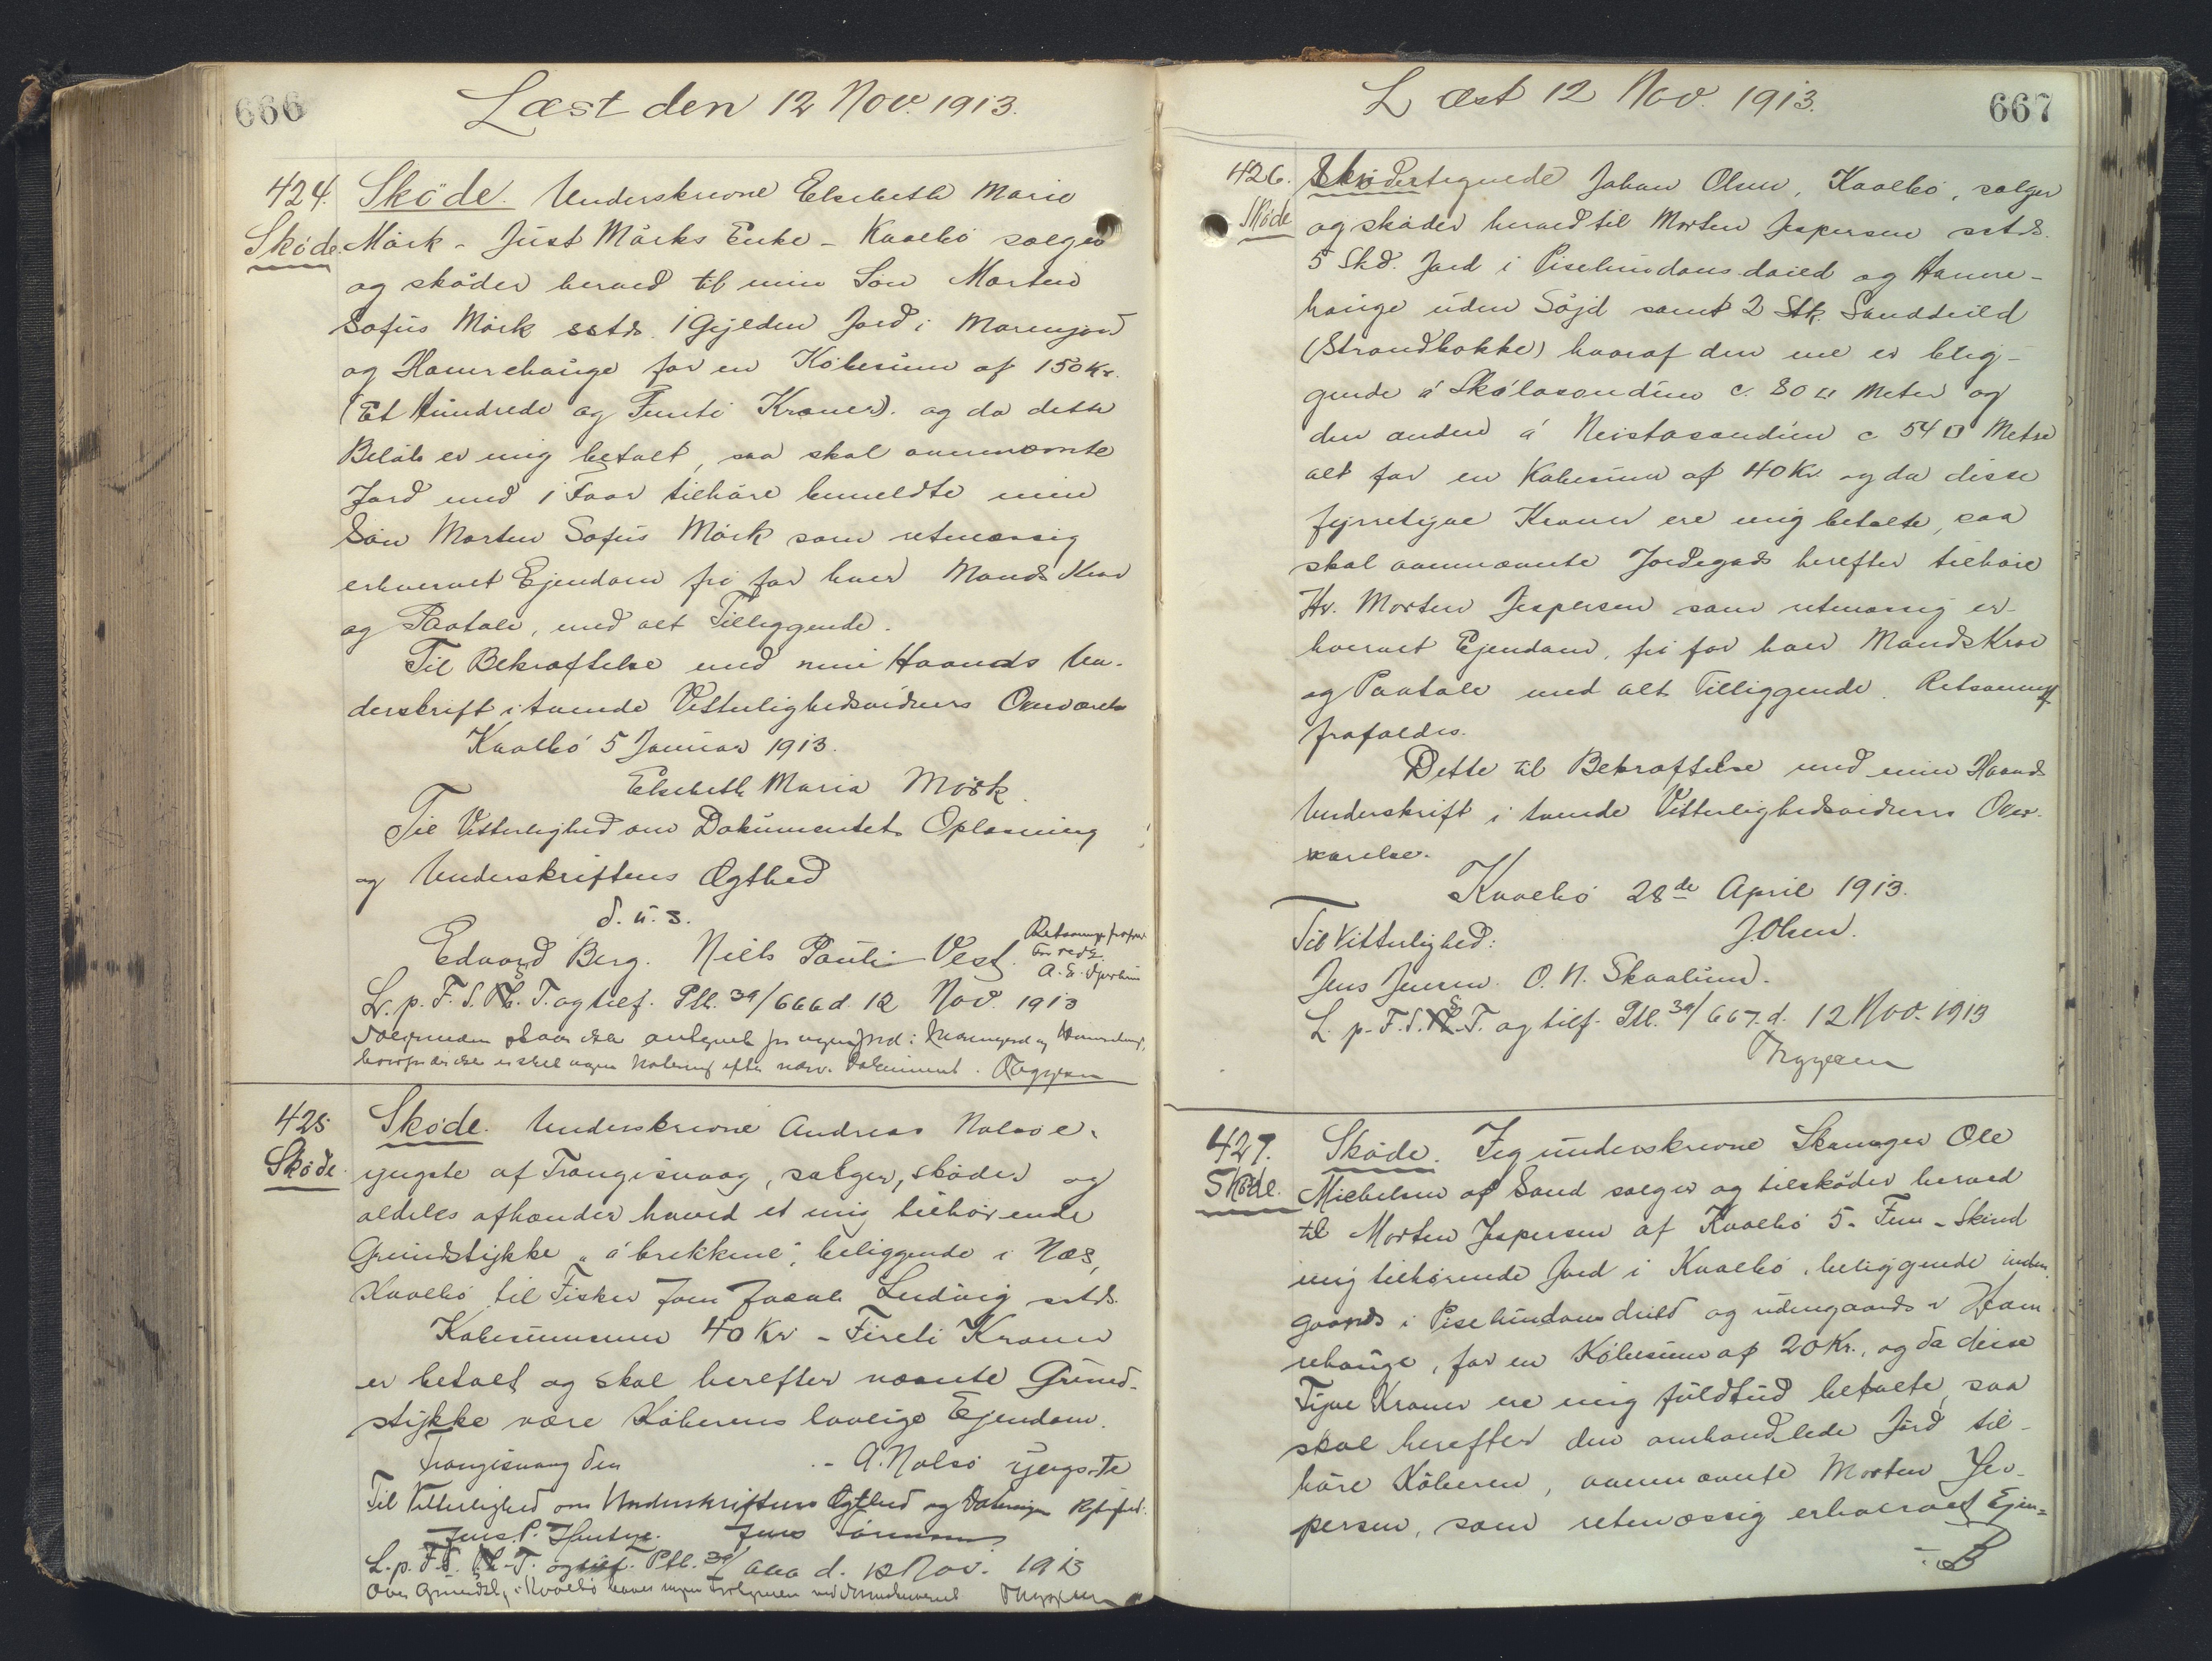 666
Læst den 12 Nov. 1913.
424. Skøde. Underskrevne Elsebeth Marie
Skøde. Mörk - Just Mörks Enke - Kvalbö sælger
og skøder herved til min Søn Morten
Sofus Mörk sstds. 1 Gylden Jord i
og Hamrehauge for en Købesum af 150 Kr.
(Et Hundrede og Femti Kroner). og da dette
Beløb er mig betalt, saa skal ovennævnte
Jord med 1 Faar tilhøre bemeldte min
Søn Morten Sofus Mörk som retmæssig
erhvervet Ejendom fri for hver Mands Krav
og Paatale, med alt Tilliggende.
Til Bekræftelse med min Haands Un-
derskrift i tvende Vitterlighedsvidners Overværelse
Kvalbö 5 Januar 1913.
Elsebeth Maria Mörk.
Til Vitterlighed om Dokumentets Oplæsning
og Underskriftens Ægthed
d. u. s.
Edvard Berg. Niels Pauli Vest.
L. p. F. S. T. og tilf. Ptl. 39/666 d. 12 Nov. 1913
425 Skøde. Underskrevne Andreas Nolsøe,
Skøde. yngste af Trangisvaag, sælger, skøder og
aldeles afhænder herved et mig tilhørende
Grundstykke "á brekkune", beliggende i Næs,
Kvalbö til Fisker Joen Jacob Ludvig sstds.
Købesummen 40 Kr. - Fireti Kroner
er betalt og skal herefter nævnte Grund-
stykke være Køberens lovlige Ejendom.
Trangisvaag den -- A. Nolsö yngste
Til Vitterlighed om Underskriftens Ægthed og Dateringens Rigtighed.
Jens
L. p. F. S. T. og tilf. Ptl. 39/666 d. 12 Nov. 1913
667
Læst 12 Nov. 1913.
426. Undertegnede Johan Olsen, Kvalbö, sælger
Skøde og skøder herved til Morten Jespersen sstds.
5 Skd. Jord i Pisehundans deild og Hamre-
hauge uden Søjd samt 2 Stk. Sanddeild
(Strandbakke) hvoraf den ene er belig-
gende á Skálasandinn c. 80 □ Meter og
den anden á Neistasandinn c 54 □ Metre
alt for en Købesum af 40 Kr. og da disse
fyrretyve Kroner ere mig betalte, saa
skal ovennævnte Jordegods herefter tilhøre
Hr. Morten Jespersen som retmæssig er-
hvervet Ejendom, fri for hver Mands Krav
og Paatale med alt Tilliggende. Retsanmg
frafaldes.
Dette til Bekræftelse med min Haands
Underskrift i tvende Vitterlighedsvidners Over-
værelse.
Kvalbö 28de April 1913.
Til Vitterlighed: J Olsen.
Jens Jensen. O. N. Skaalum.
L. p. F. S. T. og tilf. Ptl. 39/667. d. 12 Nov. 1913
427. Skøde. Jeg underskrevne Ole
Skøde. Michelsen af Sand sælger og tilskøder herved
til Morten Jespersen af Kvalbö 5 - Fem - Skind
mig tilhørende Jord i Kvalbö, beliggende inden
gaards i Pisehundans deild og udengaards i Ham
rehauge, for en Købesum af 20 Kr., og da disse
Tyve Kroner ere mig fuldtud betalte, saa
skal herefter den omhandlede Jord til-
høre Køberen, ovennævnte Morten Jes-
persen, som retmæssig erhvervet Ejen-